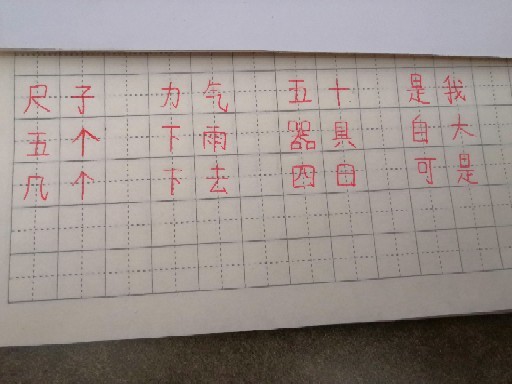 尺子 力气 五十 是我
五个 下雨 器具 自大
几个 下去 四日 可是